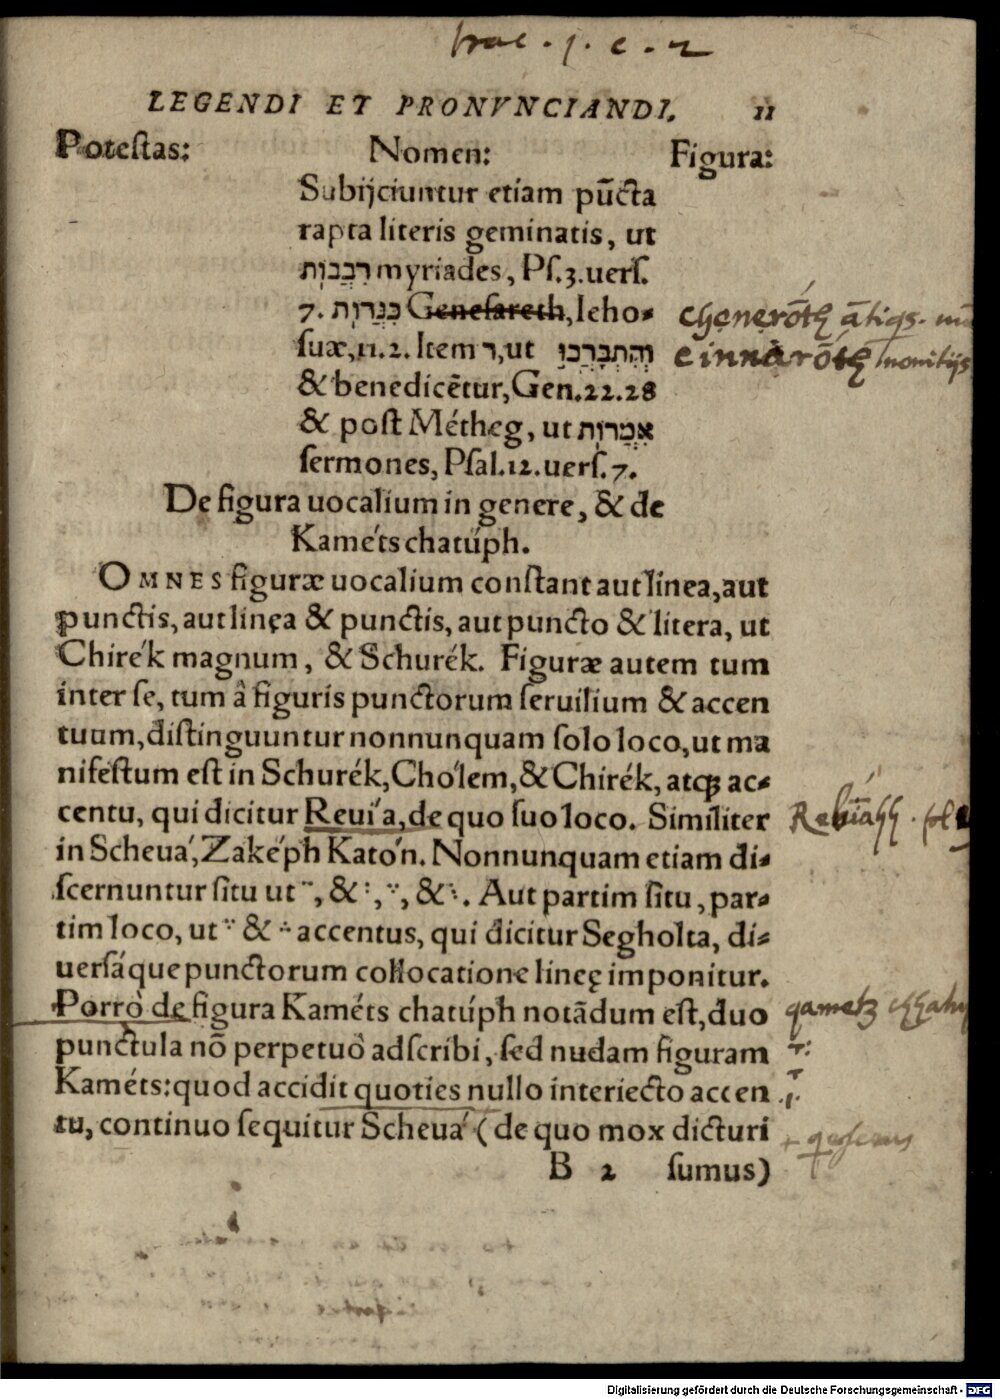 LEGENDI ET PRONVNCIANDI. 11
Poteſtas: Nomen: Figura:
Subijciuntur etiam pūcta
rapta literis geminatis, ut
רִבֲבוֹת myriades, Pſ.3.uerſ.
7. כִּנֲרוֹת Geneſareth, Ieho⸗
ſuæ,11.2. Item ר,ut וְהִתְבָּרֲכוּ
& benedicētur, Gen.22.28
& poſt Métheg, ut אִֽמֲרוֹת
ſermones, Pſal.12.uerſ.7.
De figura uocalium in genere, & de
Kaméts chatúph.
OMNES figuræ uocalium conſtant aut linea, aut
punctis, aut linea & punctis, aut puncto & litera, ut
Chirék magnum, & Schurék. Figuræ autem tum
inter ſe, tum à figuris punctorum ſeruilium & accen
tuum, diſtinguuntur nonnunquam ſolo loco, ut ma
nifeſtum eſt in Schurék, Chólem, & Chirék, atqꝫ ac⸗
centu, qui dicitur Reuía, de quo ſuo loco. Similiter
in Scheuá, Zaképh Katón. Nonnunquam etiam di⸗
ſcernuntur ſitu ut ¨, & :, ֵ, & ֶ. Aut partim ſitu, par⸗
tim loco, ut ֶ & ֒ accentus, qui dicitur Segholta, di⸗
uerſáque punctorum collocatione lineę imponitur.
Porrò de figura Kaméts chatúph notādum eſt, duo
punctula nō perpetuò adſcribi, ſed nudam figuram
Kaméts: quod accidit quoties nullo interiecto accen
tu, continuo ſequitur Scheuá (de quo mox dicturi
B 2 ſumus)
Digitalisierung gefördert durch die Deutsche Forschungsgemeinschaft - DFG